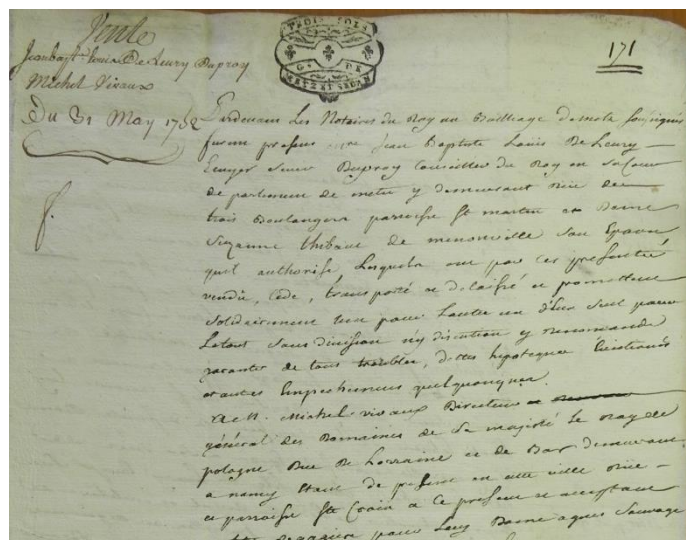 Vente
Jean bapt. Louis De Leury Duproy
Michel Vivaux
Du 31 May 1752
171
DEUX SOLS
G. DE
METZ ET SEDAN
Pardevant Les Notaires du Roy au Bailliage de metz soussignés
furent présens Jean Baptiste Louis De Leury
Ecuyer sieur Duproy Conseiller du Roy en sa Cour
de parlement de metz y demeurant Rüe des
trois Boulangers parroisse St martin et Dame
Suzanne thibaut de menonville son Epouse
quil authorise, Lesquels ont par ces presentes
vendu, cédé, transporté et délaissé et promettent
solidairement l'un pour Lautre un d'Eux seul pour
Letout sans division ny discution y renoncant
garantir de tous troubles, dettes hipoteques Evictions
et autres Empechemens quelquonques.
a M. Michel vivaux Directeur
général des Domaines de sa majesté Le Roy de
pologne Duc De Lorraine et de Bar demeurant
a nancy Etant de présent en cette ville Rüe
et parroisse Ste Croix a ce présent et acceptant
pour Luy Dame agnes Sauvage